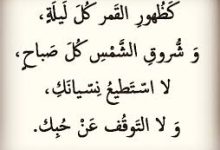 كَظُهورِ القَمر كُلَ لَيلَةٍ،
وَ شُروقِ الشَّمْسِ كُلَ صَباحٍ،
لا اسّتَطيعُ نِسّيانَكِ،
وَ لا التَوقُف عَنْ حُبِك.